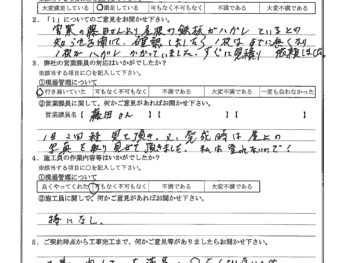 大変満足している 満足している 可もなく不可もなく 不満である 大変不満である
2.「1」についてのご意見をお聞かせ下さい。
営業の藤田さんより屋根の鉄板がハガレているとの
知らせを聞いて、確認しましたら1枚はすでに無くなり
1枚がハガレかかっていました。すぐに見積り
3. 弊社の営業課員の対応はいかがでしたか？
※該当する項目に○を記入して下さい。
①現場管理について
行き届いていた 可もなく不可もなく 不満である 大変不満である 一度も会わなかった
②営業課員に関して、何かご意見があればお聞かせ下さい。
営業課員名【 藤田さん 】【 】【 】
1日2回程見て頂き、又、完成時は屋上の
写真を取り見せて頂きました。私は登れないので！
4. 施工員の作業内容等はいかがでしたか？
※該当する項目に○を記入して下さい。
①現場管理について
良くやってくれた 可もなく不可もなく 不満である 大変不満である
②施工員に関して、何かご意見があればお聞かせ下さい。
特になし。
5. ご契約時点から工事完工まで、何かご意見等がありましたらお聞かせ下さい。